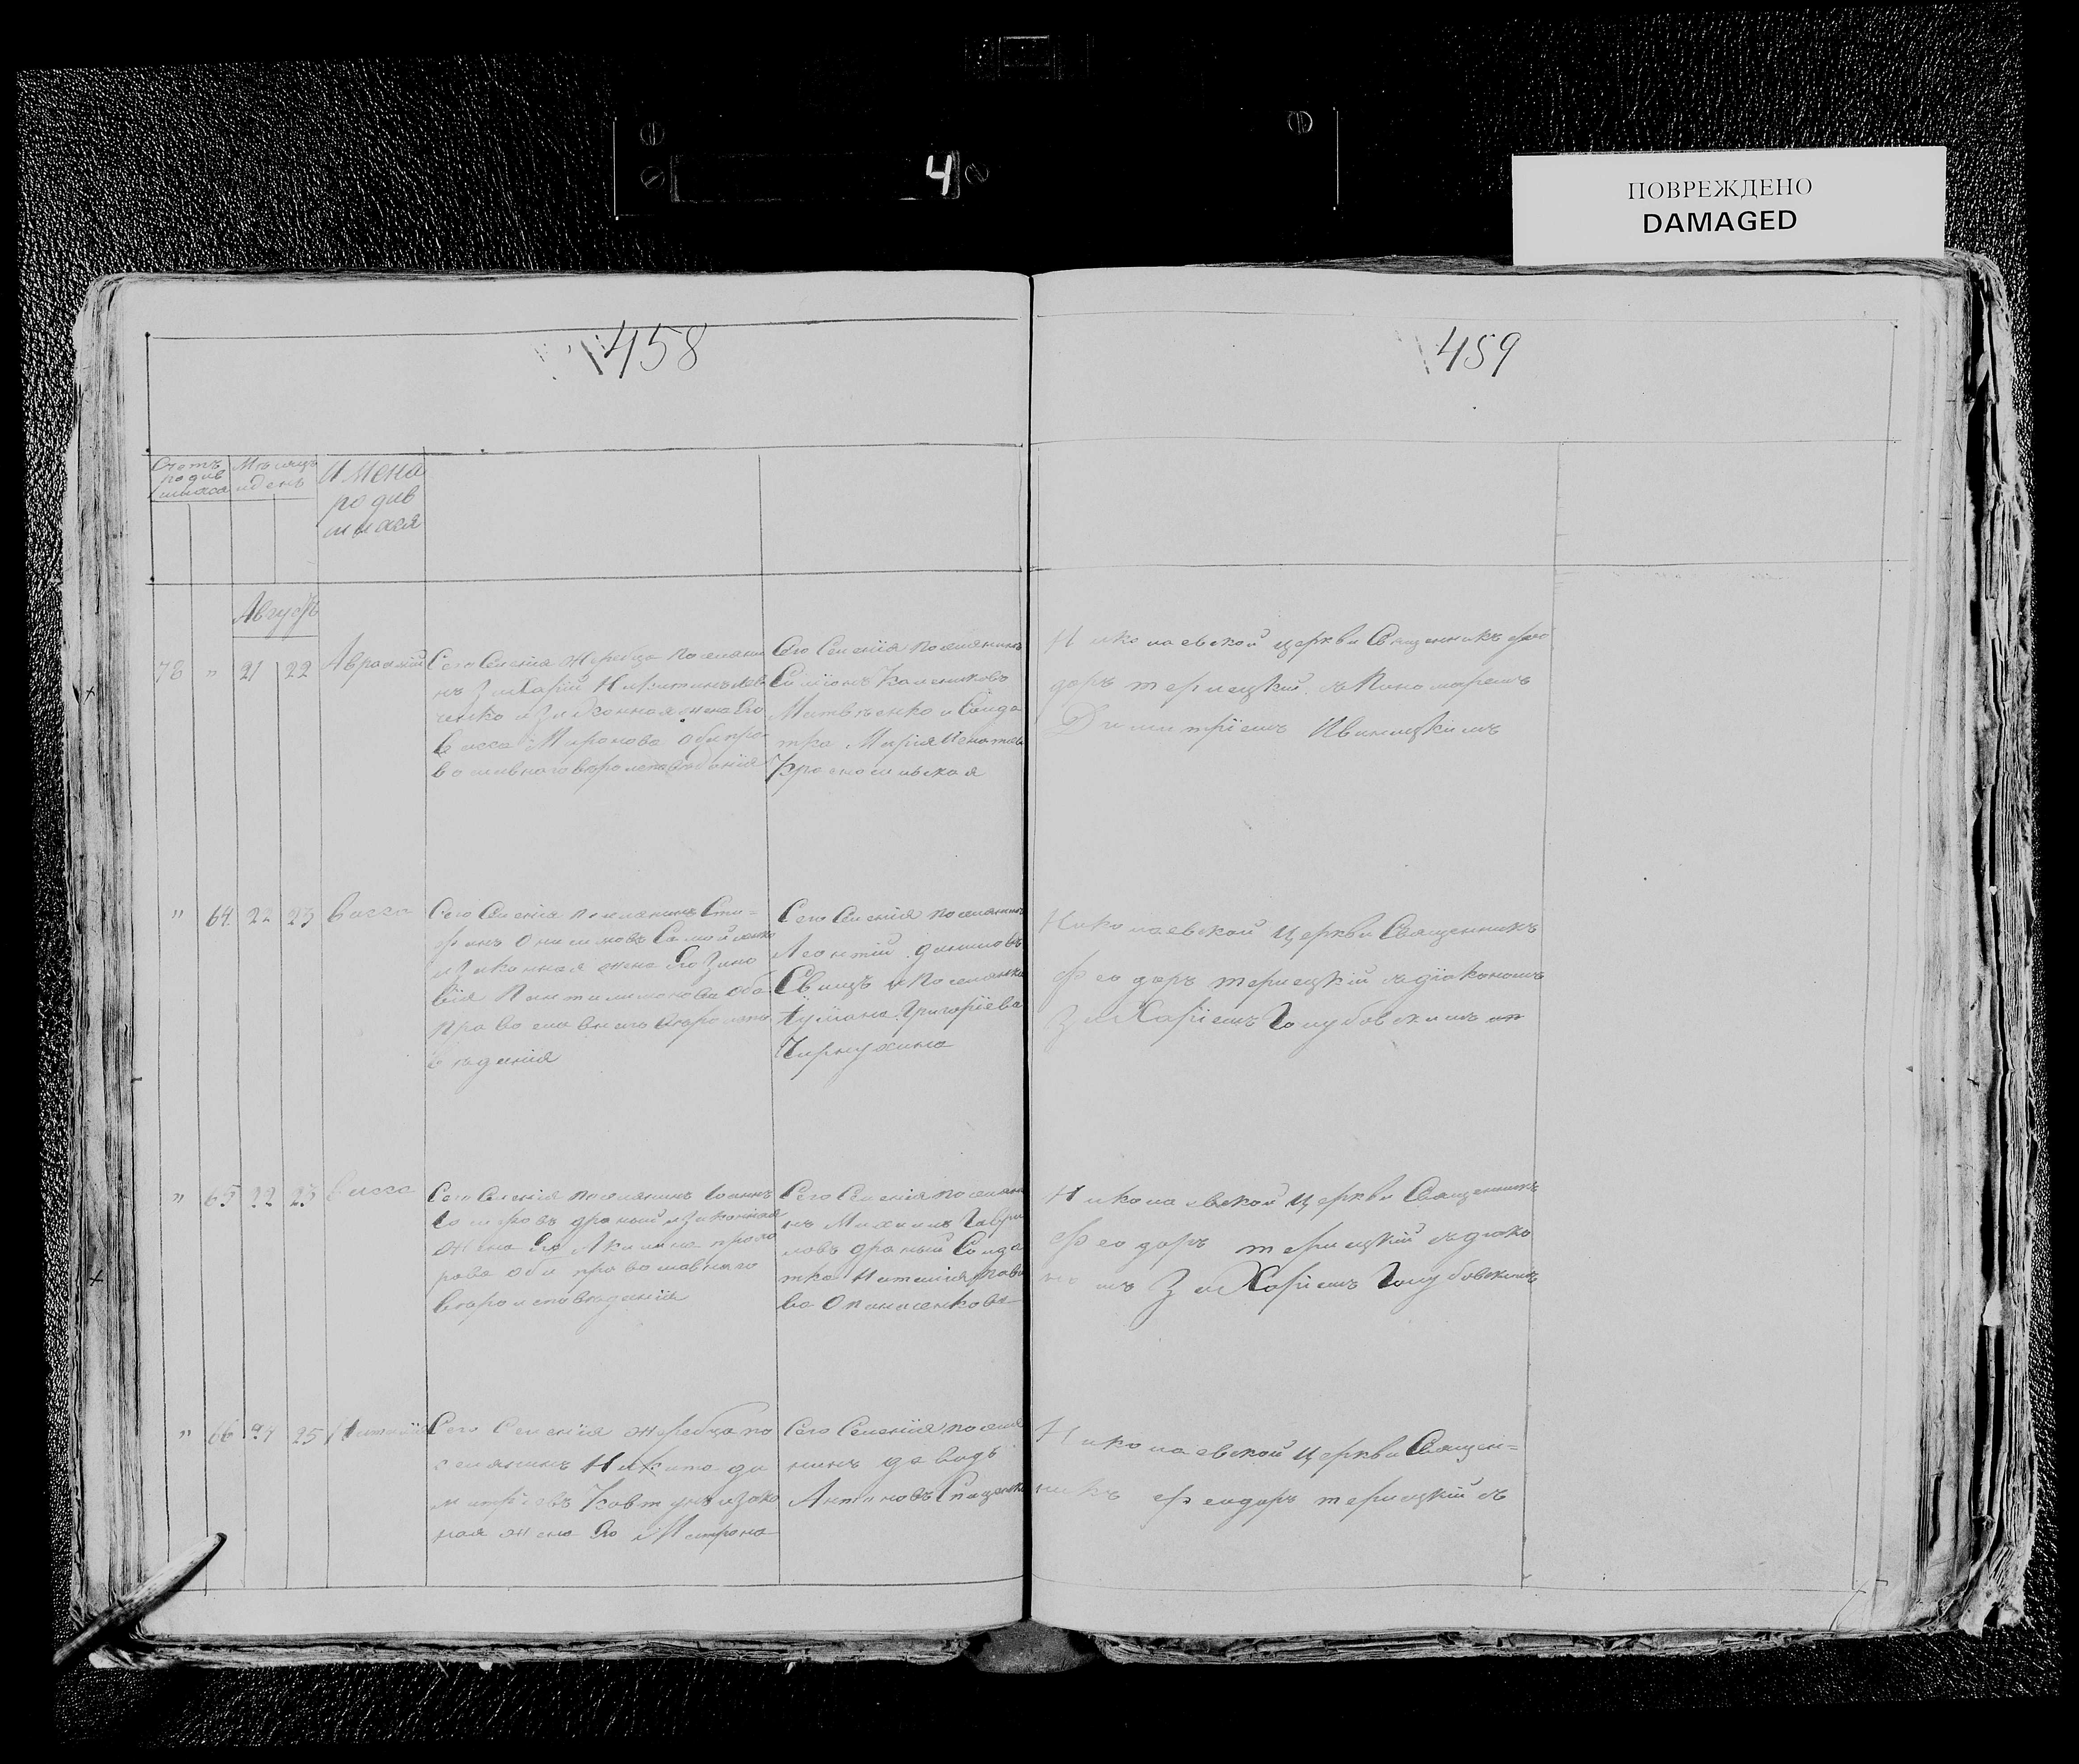 4
ПОВРЕЖДЕНО
DAMAGED
458
459
Счотъ
родив
шихся
Мѣсяцъ
и день
Имена
родив
шихся
Августъ
78 " 21 22 Авраамій
Сего Селенія жеребца поселяни
нъ Захарій Никитинъ
и Законная жена Его
Васса Миронова Оби пра
вославнаго вѣроисповѣданія
Сего Селенія поселянинъ
Симіонъ
Матвѣенко и Солда
тка Марія Игнатьева
Красносильская
Николаевской церкви Священникъ Фео
доръ терлецкій съ Пономаремъ
Димитріемъ Иваницкимъ
" 64 22 23 Васса
Сего Селенія поселянинъ Сте=
фанъ Онисимовъ Самойленко
и Законная жена Его Зино
вія Пантилимонова Оба
православнаго вѣроиспо
вѣданія
Сего Селенія поселянинъ
Леонтій даниловъ
и поселянка
Іуліана Григоріева
Николаевской Церкви Священникъ
Феодоръ терлецкій съ діакономъ
Захаріемъ Голубовскимъ
" 65 22 23 Васса
Сего Селенія поселянинъ Іоаннъ
драный и Законная
жена Его Акилина прохо
рова оби православнаго
вѣроисповѣданія
Сего Селенія поселяни
нъ Михаилъ Гаври
ловъ драный Солда
тка Наталія
ва Опанасенкова
Николаевской Церкви Священникъ
Феодоръ терлецкій съ діако
номъ Захаріемъ Голубовскимъ
" 66 24 25 Наталія
Сего Селенія жеребца по
селянинъ Никита ди
митріевъ Ковтунъ и Зако
ная жена Его Матрона
Сего Селенія поселя
нинъ давидъ
Антоновъ
Николаевской Церкви Священ=
никъ Феодоръ терлецкій съ